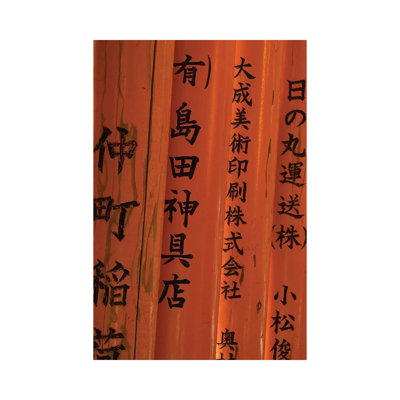 日の丸運送(株) 小松俊
大成美術印刷株式会社 奥
有)島田神具店
仲町稲荷